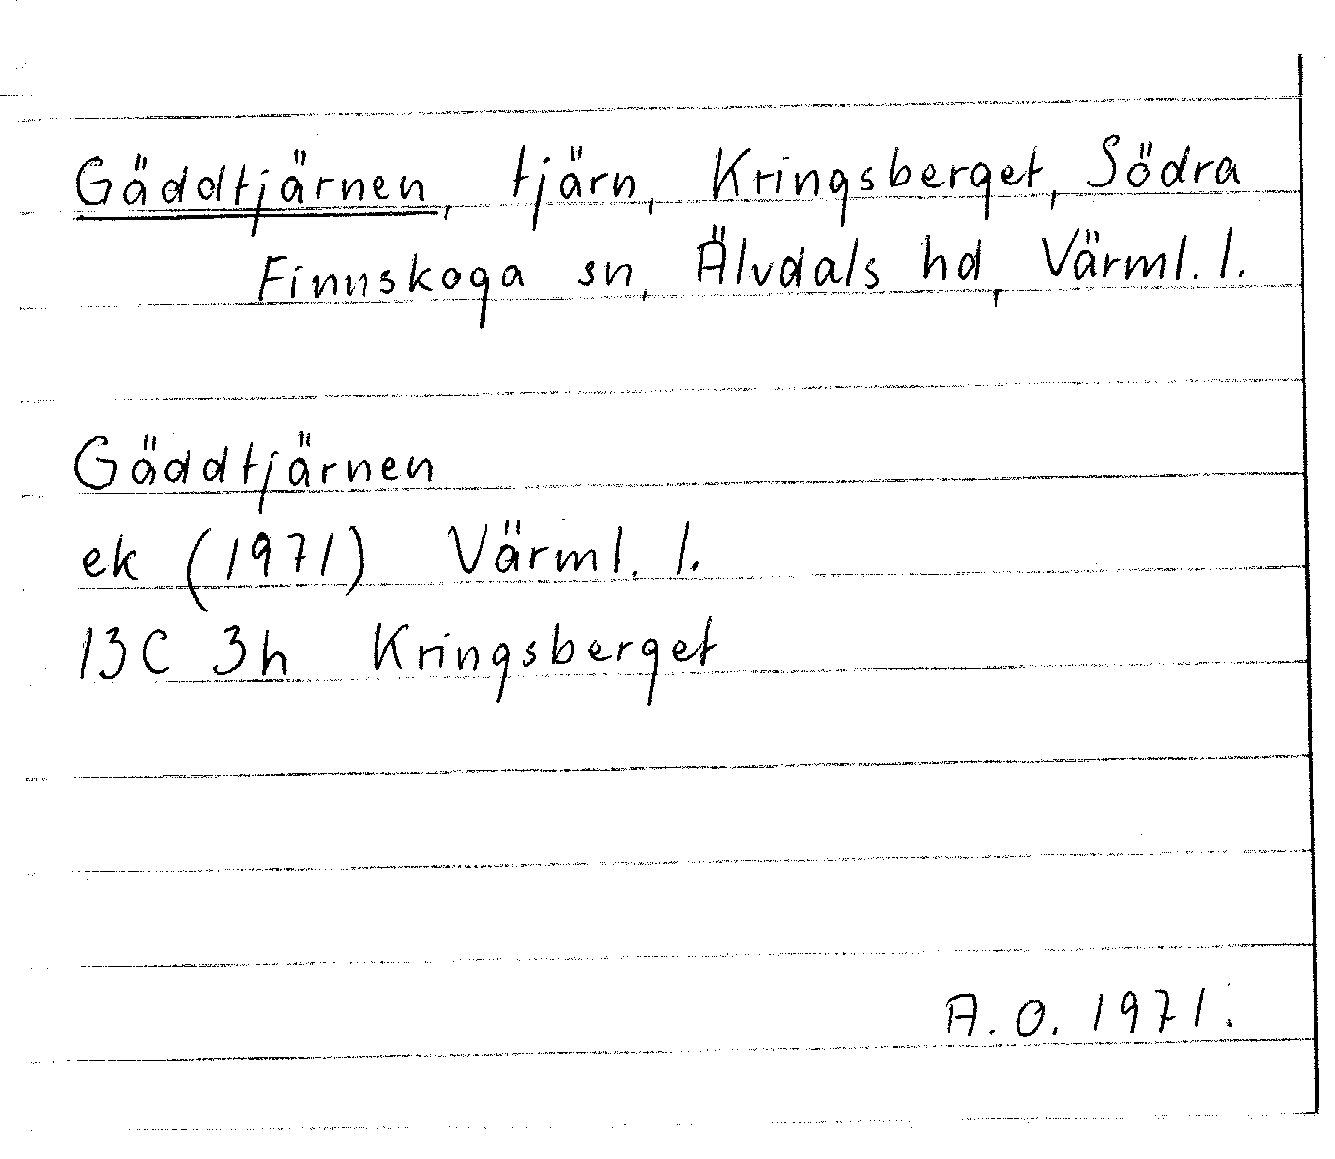 Gäddtjärnen, tjärn, Kringsberget, Södra
Finnskoga sn, Älvdals hd, Värml. l.
Gäddtjärnen
ek (1971) Värml. l.
13C 3h Kringsberget
A. O. 1971.